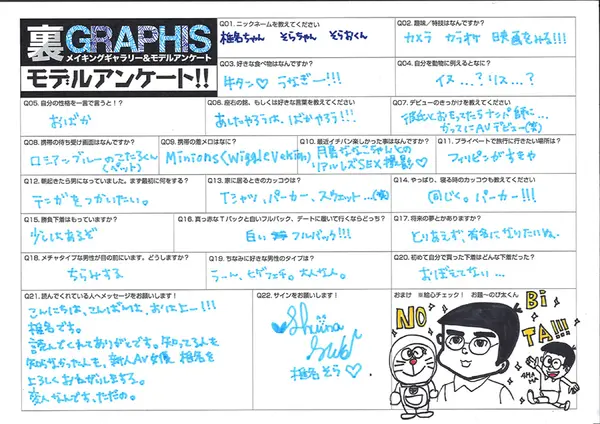 裏GRAPHIS
メイキングギャラリー&モデルアンケート
モデルアンケート!!
Q01. ニックネームを教えてください
椎名ちゃん そらちゃん そらおくん
Q02. 趣味/特技はなんですか?
カメラ カラオケ 映画をみる!!!
Q03. 好きな食べ物はなんですか?
牛タン♡ うなぎー!!!
Q04. 自分を動物に例えるとなに?
イヌ...? リス...?
Q05. 自分の性格を一言で言うと!?
おばか
Q06. 座右の銘、もしくは好きな言葉を教えてください
あしたやろうは、ばかやろう!!!
Q07. デビューのきっかけを教えてください
彼氏とおもってたらナンパ師に...
かってにAVデビュー(笑)
Q08. 携帯の待ち受け画面はなに?
ロシアンブルーのてたろくん
(ペット)
Q09. 携帯の着メロはなに?
Minions(Wiggle
Q10. 最近イチバン楽しかった事はなんですか?
ちゃんとの
リアルレズSEX撮影♡
Q11. プライベートで旅行に行きたい場所は?
フィリピンがすきや
Q12. 朝起きたら男になっていました。まず最初に何をする?
テンガをつかいたい。
Q13. 家に居るときのカッコウは?
Tシャツ、パーカー、スウェット...(笑)
Q14. やっぱり、寝る時のカッコウも教えてください
同じく。パーカー!!!
Q15. 勝負下着はもっていますか?
少しはあるぞ
Q16. 真っ赤なTバックと白いフルバック、デートに履いて行くならどっち?
白い フルバック!!!
Q17. 将来の夢とかありますか?
とりあえず、有名になりたいね。
Q18. メチャタイプな男性が目の前にいます。どうしますか?
ちらみする
Q19. ちなみに好きな男性のタイプは?
うーん、ヒゲフェチ。大人な人。
Q20. 初めて自分で買った下着はどんな下着だった?
おぼえてない...
Q21. 読んでくれている人へメッセージをお願いします!
こんにちは、こんばんは、おはよー!!!
椎名です。
読んでくれてありがとです。知ってる人も
知らなかった人も、新人AV女優 椎名を
よろしくおねがいしまする。
変人なんです、ただの。
Q22. サインをお願いします!
Shiina
椎名そら♡
おまけ ※絵心チェック! お題〜のび太くん
NO
BI
TA!!!